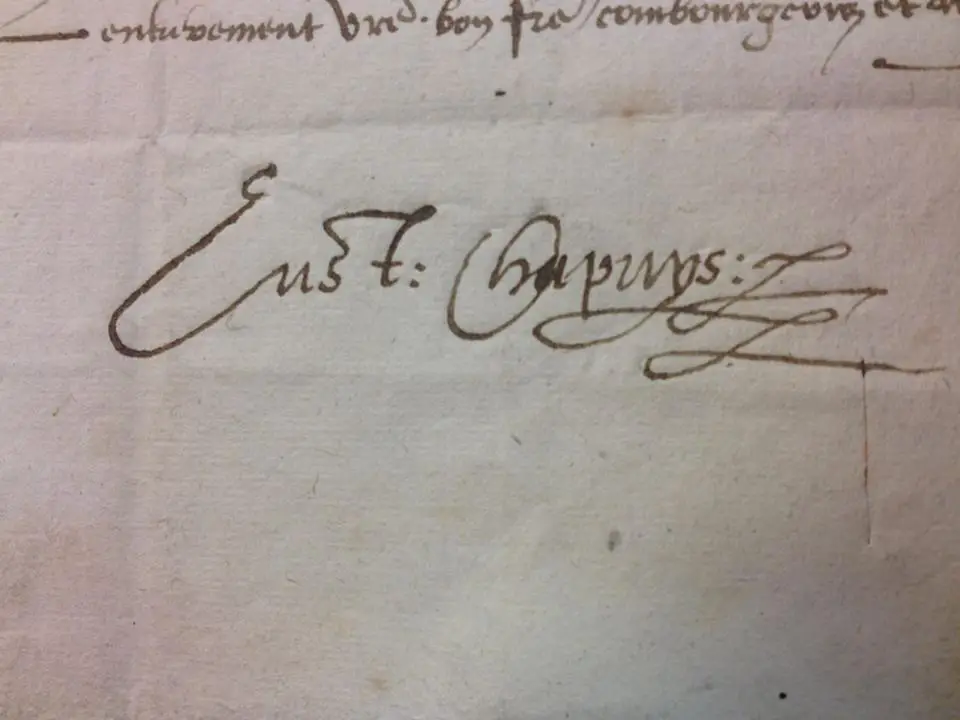 entierement vre bon fre combourgeois et
Eust: Chapuys: